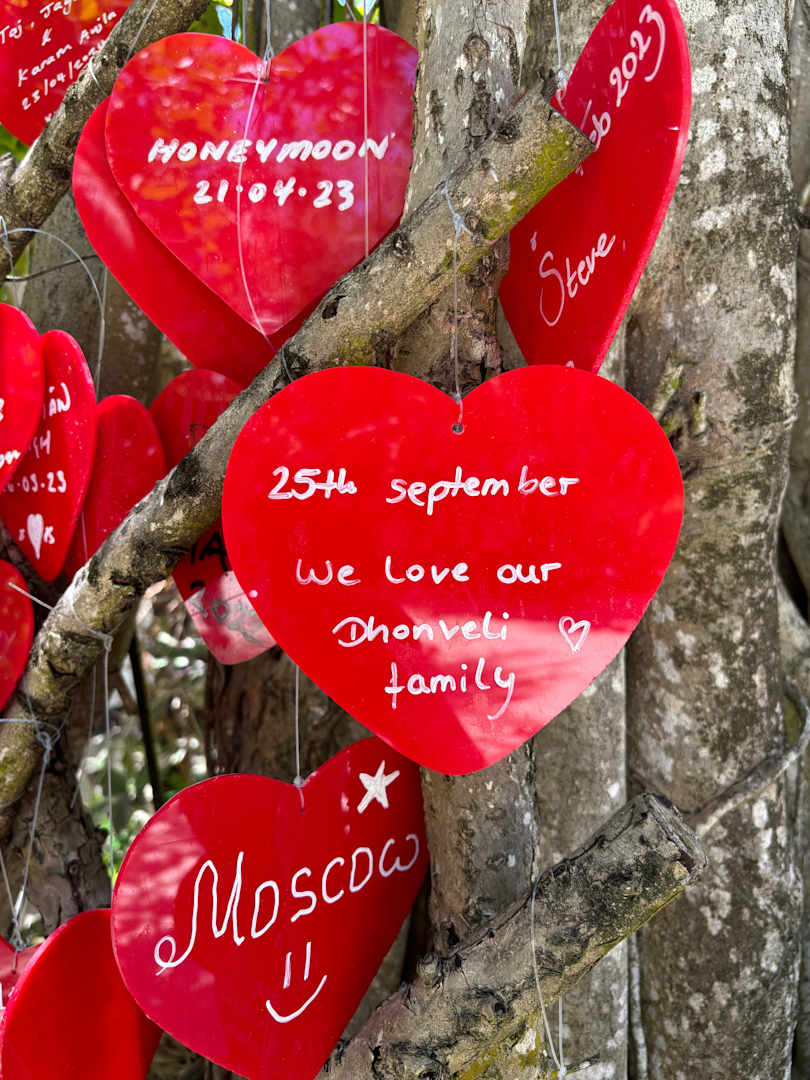 Taj, Jaya
&
Karam
23/04/20
HONEYMOON
21.04.23
Feb 2023
Steve
-03-23
25th september
We Love our
Dhonveli ♡
family
Moscow